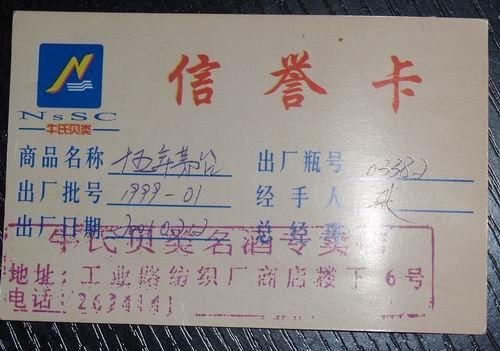 信誉卡
NSSC
牛氏贝类
商品名称 十五年茅台 出厂瓶号 03382
出厂批号 1999-01 经手人
出厂日期 总经理
牛氏贝类名酒专卖店
地址：工业路纺织厂商店楼下6号
电话：2634141